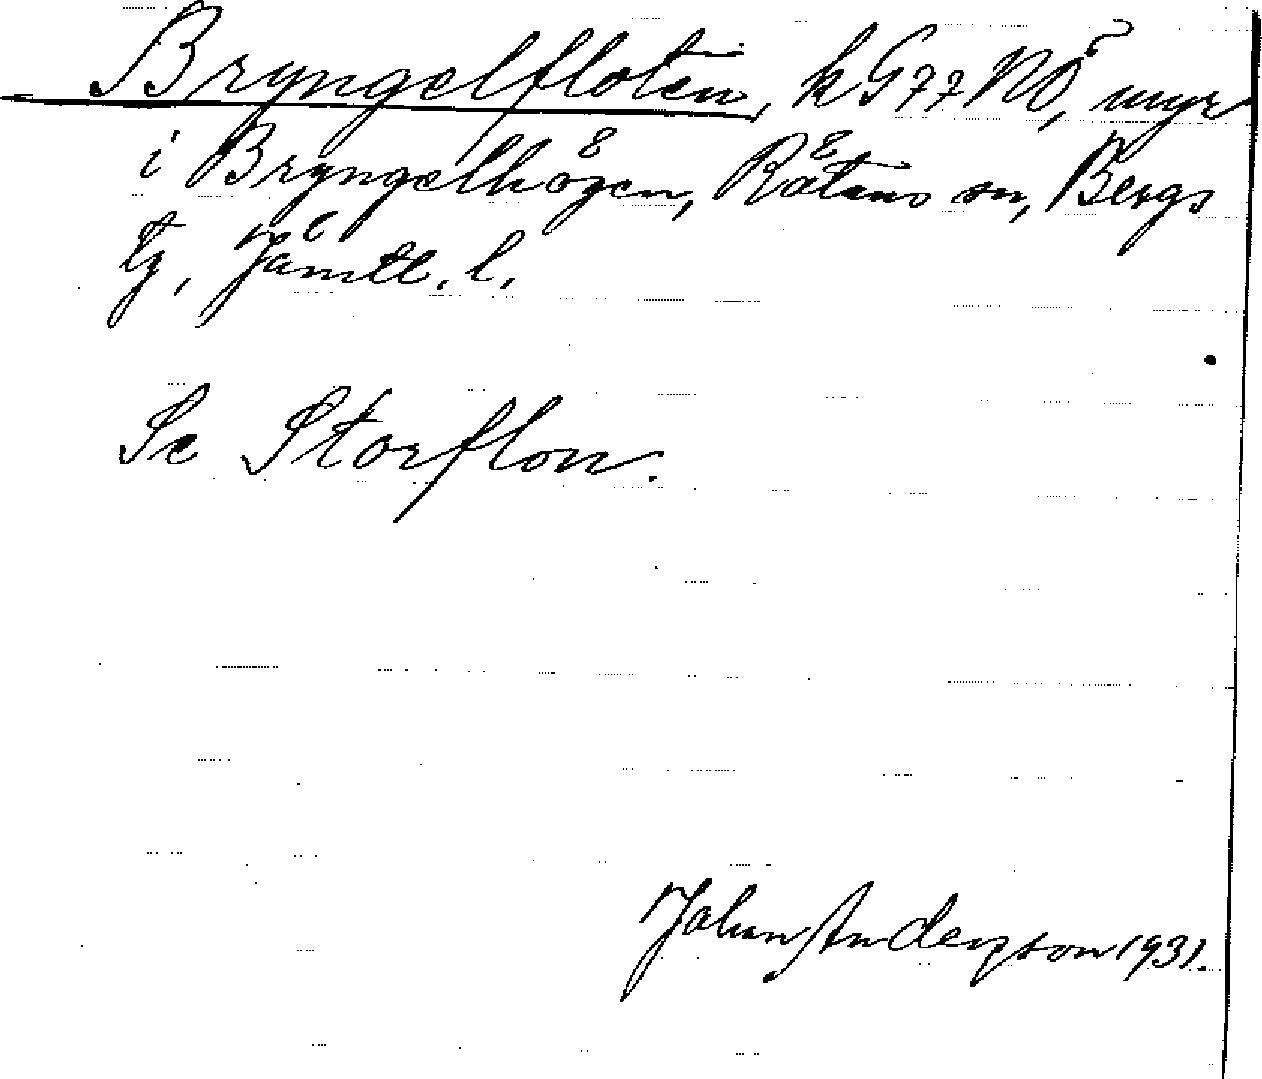 Bryngelfloten, k G77 NÖ, myr
i Bryngelhögen, Rätans sn, Bergs
tg, Jämtl. l.
Se Storflon.
Johan Anderzson 1931.